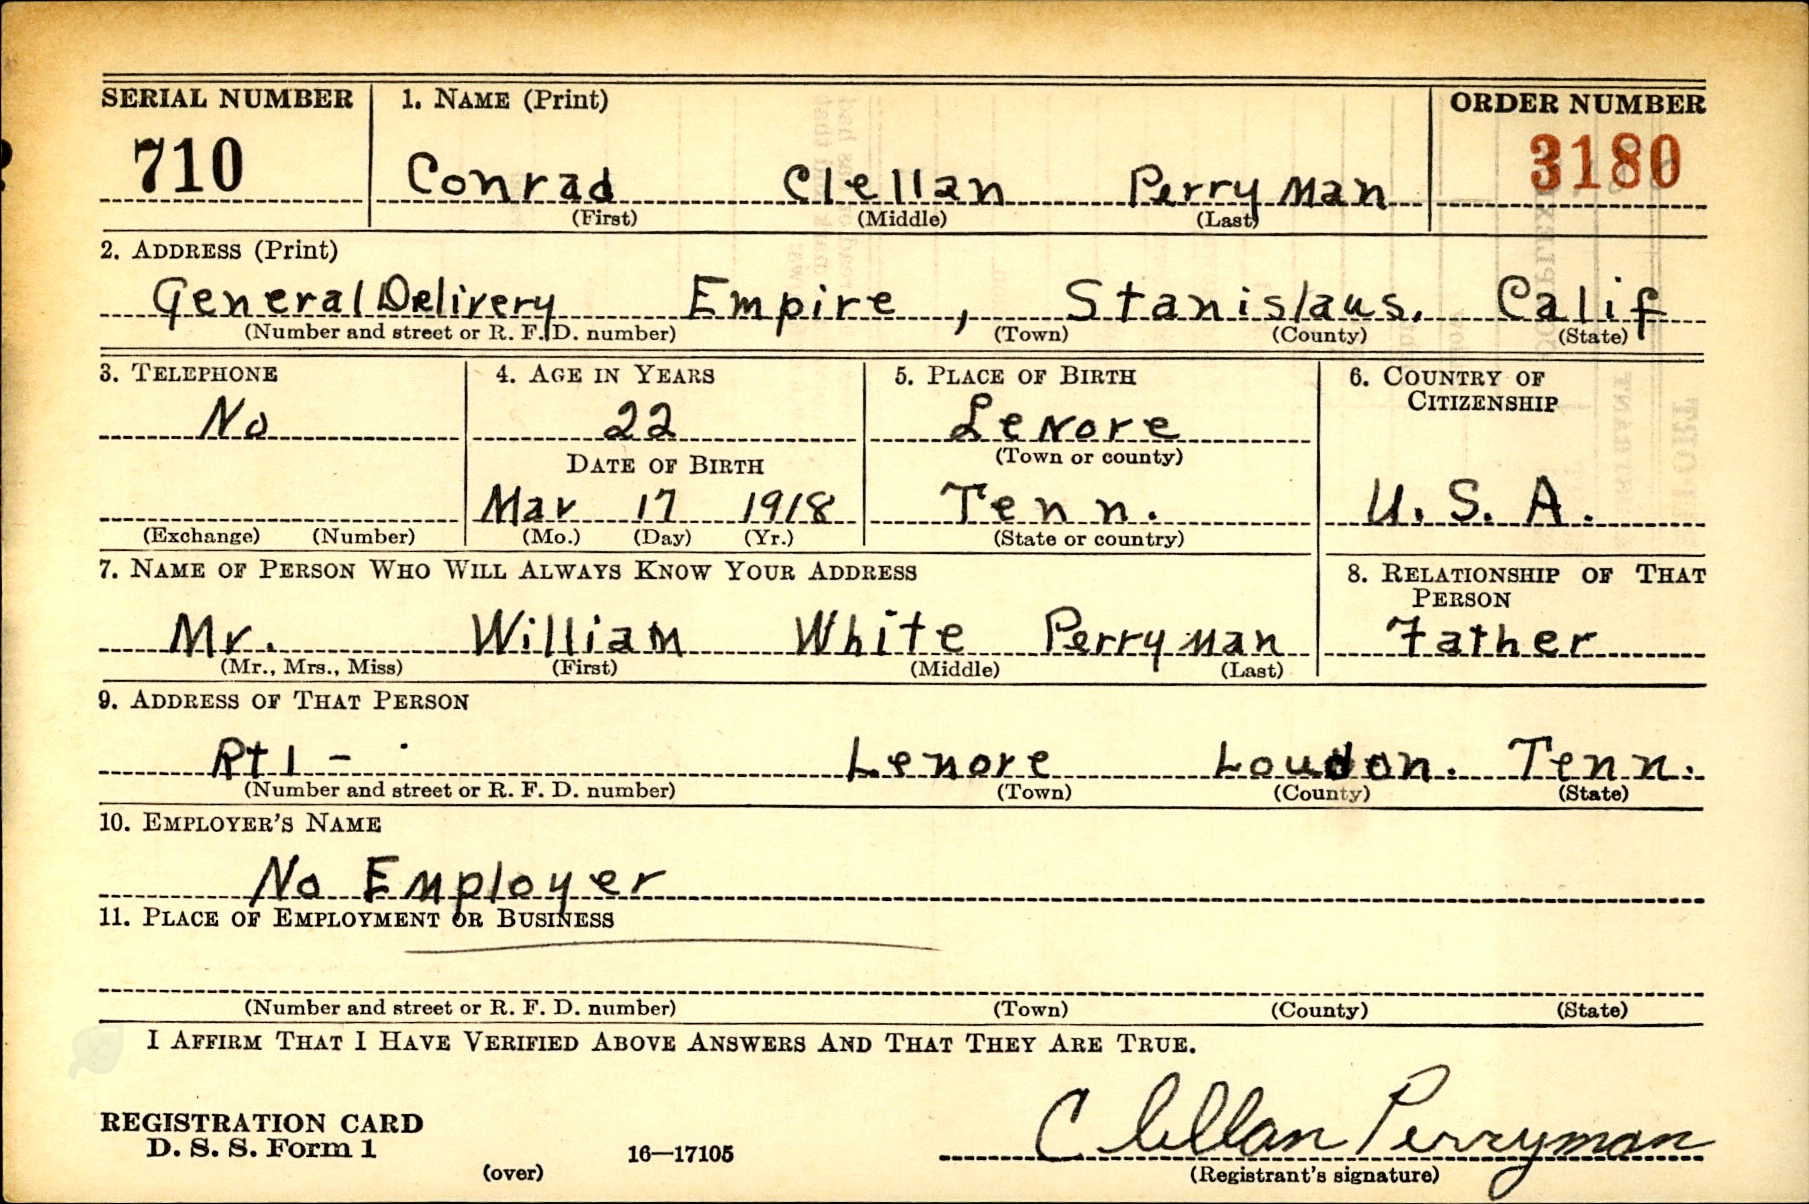 SERIAL NUMBER 1. NAME (Print) ORDER NUMBER
710 Conrad Clellan Perryman 3180
(First) (Middle) (Last)
2. ADDRESS (Print)
General Delivery Empire, Stanislaus, Calif
(Number and street or R. F. D. number) (Town) (County) (State)
3. TELEPHONE 4. AGE IN YEARS 5. PLACE OF BIRTH 6. COUNTRY OF
CITIZENSHIP
No 22 Lenore
DATE OF BIRTH (Town or county)
Mar 17 1918 Tenn. U. S. A.
(Exchange) (Number) (Mo.) (Day) (Yr.) (State or country)
7. NAME OF PERSON WHO WILL ALWAYS KNOW YOUR ADDRESS 8. RELATIONSHIP OF THAT
PERSON
Mr. William White Perryman Father
(Mr., Mrs., Miss) (First) (Middle) (Last)
9. ADDRESS OF THAT PERSON
Rt 1 - Lenore Loudon. Tenn.
(Number and street or R. F. D. number) (Town) (County) (State)
10. EMPLOYER'S NAME
No Employer
11. PLACE OF EMPLOYMENT OR BUSINESS
(Number and street or R. F. D. number) (Town) (County) (State)
I AFFIRM THAT I HAVE VERIFIED ABOVE ANSWERS AND THAT THEY ARE TRUE.
Clellan Perryman
REGISTRATION CARD
D. S. S. Form 1 16—17105
(over) (Registrant's signature)